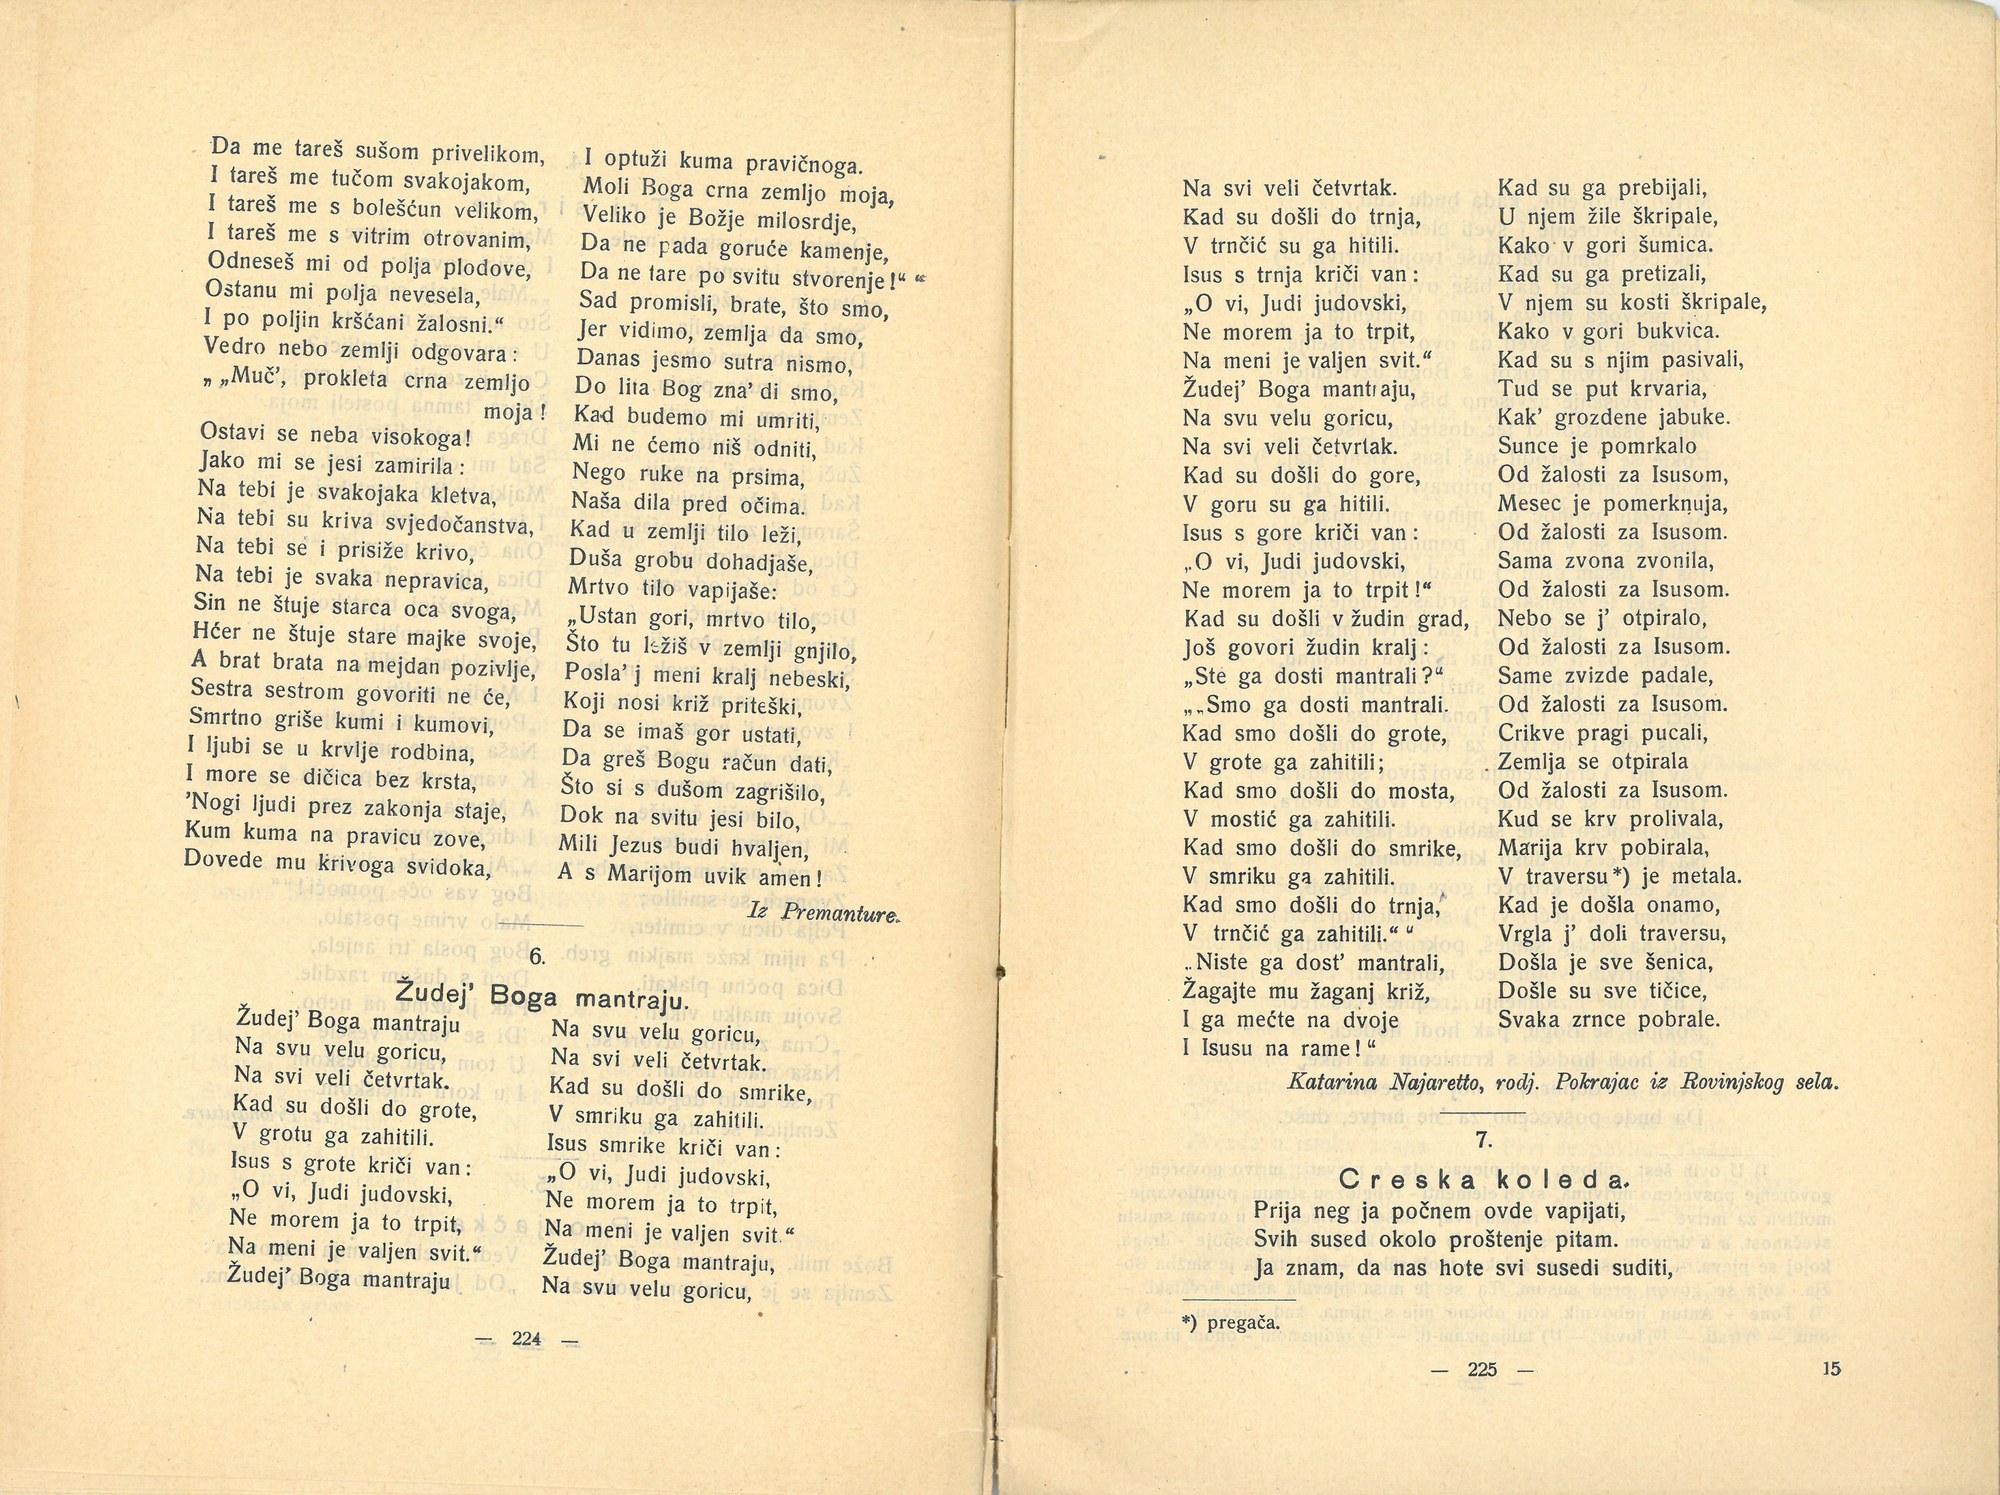 Da me tareš sušom privelikom,
I tareš me tučom svakojakom,
I tareš me s bolešćun velikom,
I tareš me s vitrim otrovanim,
Odneseš mi od polja plodove,
Ostanu mi polja nevesela,
I po poljin kršćani žalosni.“
Vedro nebo zemlji odgovara:
„ „Muč’, prokleta crna zemljo
moja!
Ostavi se neba visokoga!
Jako mi se jesi zamirila:
Na tebi je svakojaka kletva,
Na tebi su kriva svjedočanstva,
Na tebi se i prisiže krivo,
Na tebi je svaka nepravica,
Sin ne štuje starca oca svoga,
Hćer ne štuje stare majke svoje,
A brat brata na mejdan pozivlje,
Sestra sestrom govoriti ne će,
Smrtno griše kumi i kumovi,
I ljubi se u krvlje rodbina,
I more se dičica bez krsta,
’Nogi ljudi prez zakonja staje,
Kum kuma na pravicu zove,
Dovede mu krivoga svidoka,
I optuži kuma pravičnoga.
Moli Boga crna zemljo moja,
Veliko je Božje milosrdje,
Da ne pada goruće kamenje,
Da ne tare po svitu stvorenje!“ “
Sad promisli, brate, što smo,
Jer vidimo, zemlja da smo,
Danas jesmo sutra nismo,
Do lita Bog zna’ di smo,
Kad budemo mi umriti,
Mi ne ćemo niš odniti,
Nego ruke na prsima,
Naša dila pred očima.
Kad u zemlji tilo leži,
Duša grobu dohadjaše,
Mrtvo tilo vapijaše:
„Ustan gori, mrtvo tilo,
Što tu ležiš v zemlji gnjilo,
Posla’ j meni kralj nebeski,
Koji nosi križ priteški,
Da se imaš gor ustati,
Da greš Bogu račun dati,
Što si s dušom zagrišilo,
Dok na svitu jesi bilo,
Mili Jezus budi hvaljen,
A s Marijom uvik amen!
Iz Premanture.
6.
Žudej’ Boga mantraju.
Žudej’ Boga mantraju
Na svu velu goricu,
Na svi veli četvrtak.
Kad su došli do grote,
V grotu ga zahitili.
Isus s grote kriči van:
„O vi, Judi judovski,
Ne morem ja to trpit,
Na meni je valjen svit.“
Žudej’ Boga mantraju
Na svu velu goricu,
Na svi veli četvrtak.
Kad su došli do smrike,
V smriku ga zahitili.
Isus smrike kriči van:
„O vi, Judi judovski,
Ne morem ja to trpit,
Na meni je valjen svit.“
Žudej’ Boga mantraju,
Na svu velu goricu,
— 224 —
Na svi veli četvrtak.
Kad su došli do trnja,
V trnčić su ga hitili.
Isus s trnja kriči van:
„O vi, Judi judovski,
Ne morem ja to trpit,
Na meni je valjen svit.“
Žudej’ Boga mantraju,
Na svu velu goricu,
Na svi veli četvrtak.
Kad su došli do gore,
V goru su ga hitili.
Isus s gore kriči van:
„O vi, Judi judovski,
Ne morem ja to trpit!“
Kad su došli v žudin grad,
Još govori žudin kralj:
„Ste ga dosti mantrali?“
„„Smo ga dosti mantrali.
Kad smo došli do grote,
V grote ga zahitili;
Kad smo došli do mosta,
V mostić ga zahitili.
Kad smo došli do smrike,
V smriku ga zahitili.
Kad smo došli do trnja,
V trnčić ga zahitili.“ “
„Niste ga dost’ mantrali,
Žagajte mu žaganj križ,
I ga mećte na dvoje
I Isusu na rame!“
Kad su ga prebijali,
U njem žile škripale,
Kako v gori šumica.
Kad su ga pretizali,
V njem su kosti škripale,
Kako v gori bukvica.
Kad su s njim pasivali,
Tud se put krvaria,
Kak’ grozdene jabuke.
Sunce je pomrkalo
Od žalosti za Isusom,
Mesec je pomerknuja,
Od žalosti za Isusom.
Sama zvona zvonila,
Od žalosti za Isusom.
Nebo se j’ otpiralo,
Od žalosti za Isusom.
Same zvizde padale,
Od žalosti za Isusom.
Crikve pragi pucali,
Zemlja se otpirala
Od žalosti za Isusom.
Kud se krv prolivala,
Marija krv pobirala,
V traversu*) je metala.
Kad je došla onamo,
Vrgla j’ doli traversu,
Došla je sve šenica,
Došle su sve tičice,
Svaka zrnce pobrale.
Katarina Najaretto, rodj. Pokrajac iz Rovinjskog sela.
7.
Creska koleda.
Prija neg ja počnem ovde vapijati,
Svih sused okolo proštenje pitam.
Ja znam, da nas hote svi susedi suditi,
*) pregača.
— 225 —
15